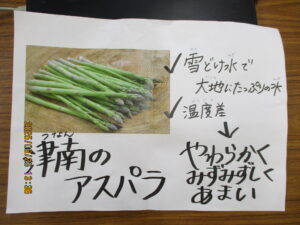 ✓雪どけ水で
大地にたっぷりの水
✓温度差
↓
やわらかく
みずみずしく
あまい
つなん
のアスパラ